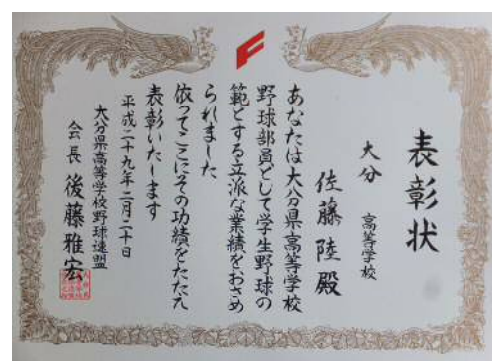 表彰状
大分 高等学校
佐藤 陸 殿
あなたは大分県高等学校
野球部員として学生野球の
範とする立派な業績をおさめ
られました
依ってここにその功績をたたえ
表彰いたします
平成二十九年二月二十日
大分県高等学校野球連盟
会長 後藤雅宏